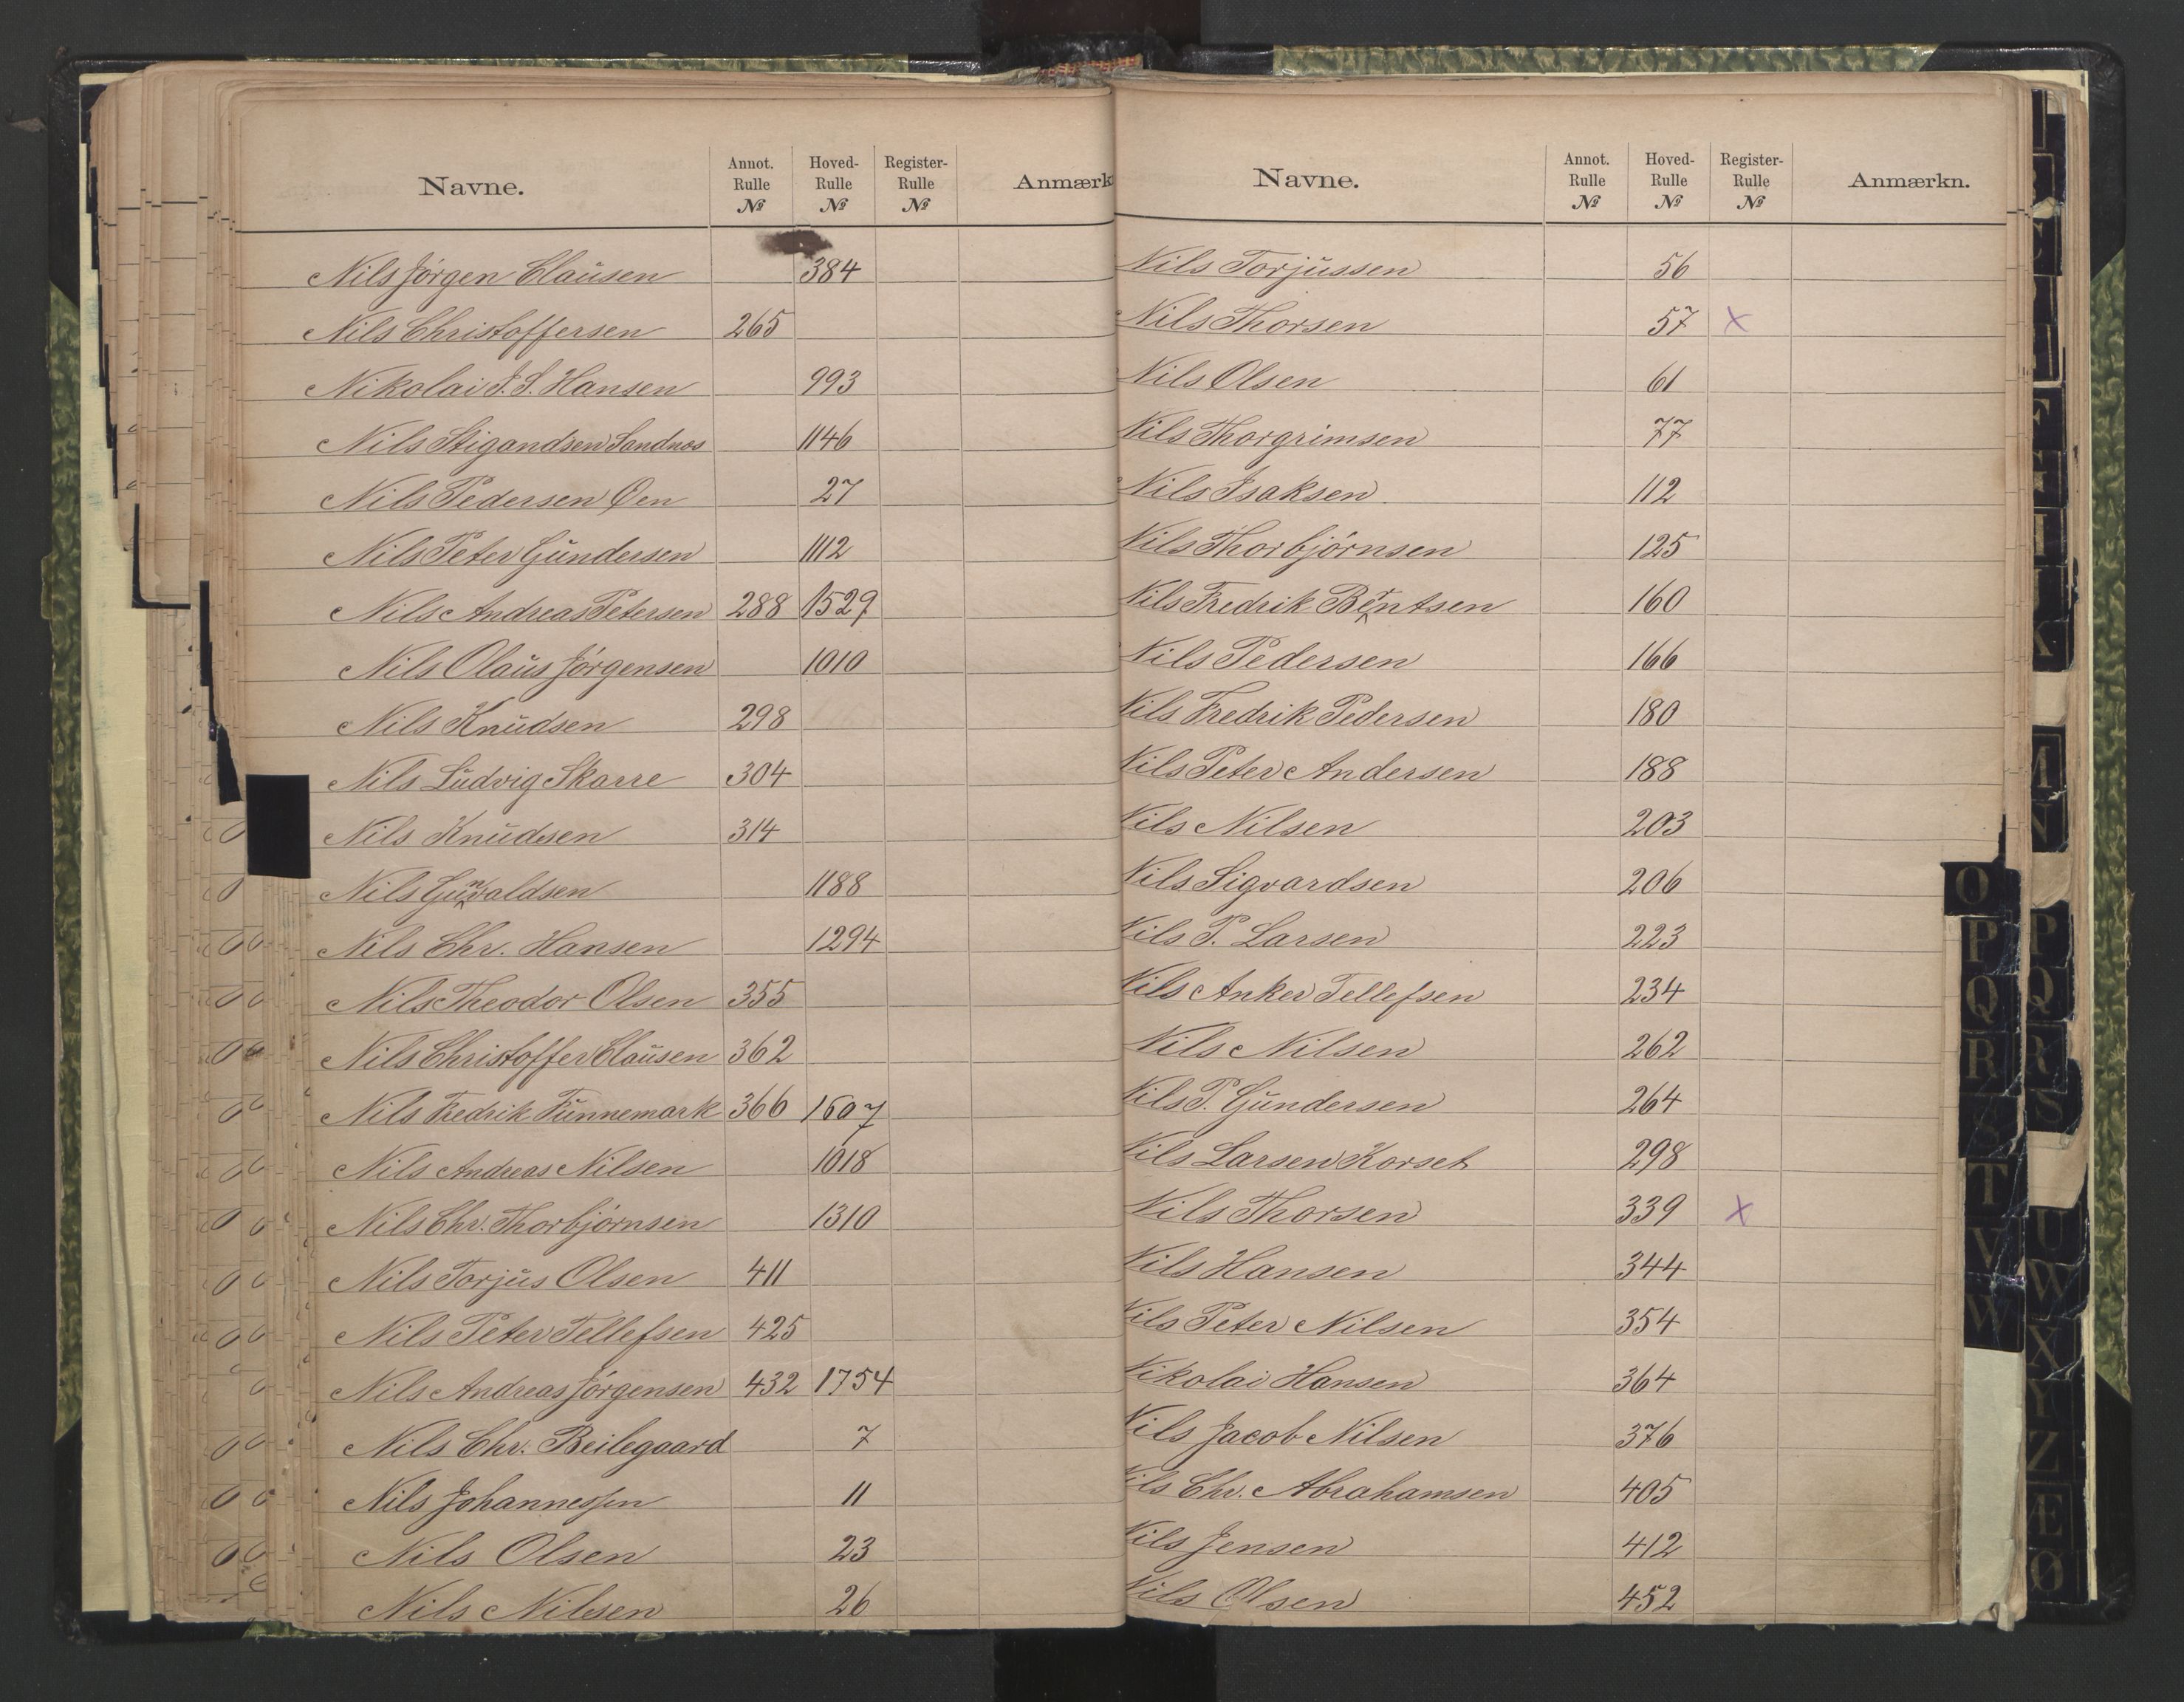 Navne. Annot. Rulle № Hoved-Rulle № Register-Rulle № Anmærk
Nils Jörgen Claüsen 384
Nils Christoffersen 265
Nikolai J. S. Hansen 993
Nils Stigandsen Sandnes 1146
Nils Pedersen Øen 27
Nils Peter Gündersen 1112
Nils Andreas Petersen 288 1529
Nils Olaüs Jörgensen 1010
Nils Knüdsen 298
Nils Lüdvig Skarre 304
Nils Knüdsen 314
Nils Günvaldsen 1188
Nils Chr. Hansen 1294
Nils Theodor Olsen 355
Nils Christoffer Claüsen 362
Nils Fredrik Fünnemark 366 1607
Nils Andreas Nilsen 1018
Nils Chr. Thorbjörnsen 1310
Nils Torjüs Olsen 411
Nils Peter Tellefsen 425
Nils Andreas Jörgensen 432 1754
Nils Chr. Beilegaard 7
Nils Johannessen 11
Nils Olsen 23
Nils Nilsen 26
Navne. Annot. Rulle № Hoved-Rulle № Register-Rulle № Anmærkn.
Nils Torjüssen 56
Nils Thorsen 57 x
Nils Olsen 61
Nils Thorgrimsen 77
Nils Isaksen 112
Nils Thorbjörnsen 125
Nils Fredrik Berntsen 160
Nils Pedersen 166
Nils Fredrik Pedersen 180
Nils Peter Andersen 188
Nils Nilsen 203
Nils Sigvardsen 206
Nils P. Larsen 223
Nils Anker Tellefsen 234
Nils Nilsen 262
Nils P. Gündersen 264
Nils Larsen Korset 298
Nils Thorsen 339 x
Nils Hansen 344
Nils Peter Nilsen 354
Nikolai Hansen 364
Nils Jacob Nilsen 376
Nils Chr. Abrahamsen 405
Nils Jensen 412
Nils Olsen 452
O
P
Q
R
S
T
V
W
P
Q
R
S
U
W
X
Y
Z
Æ
Ø